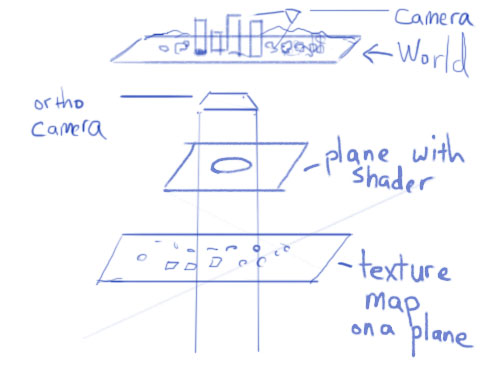 Camera
World
ortho
camera
plane with
shader
texture
map
on a plane